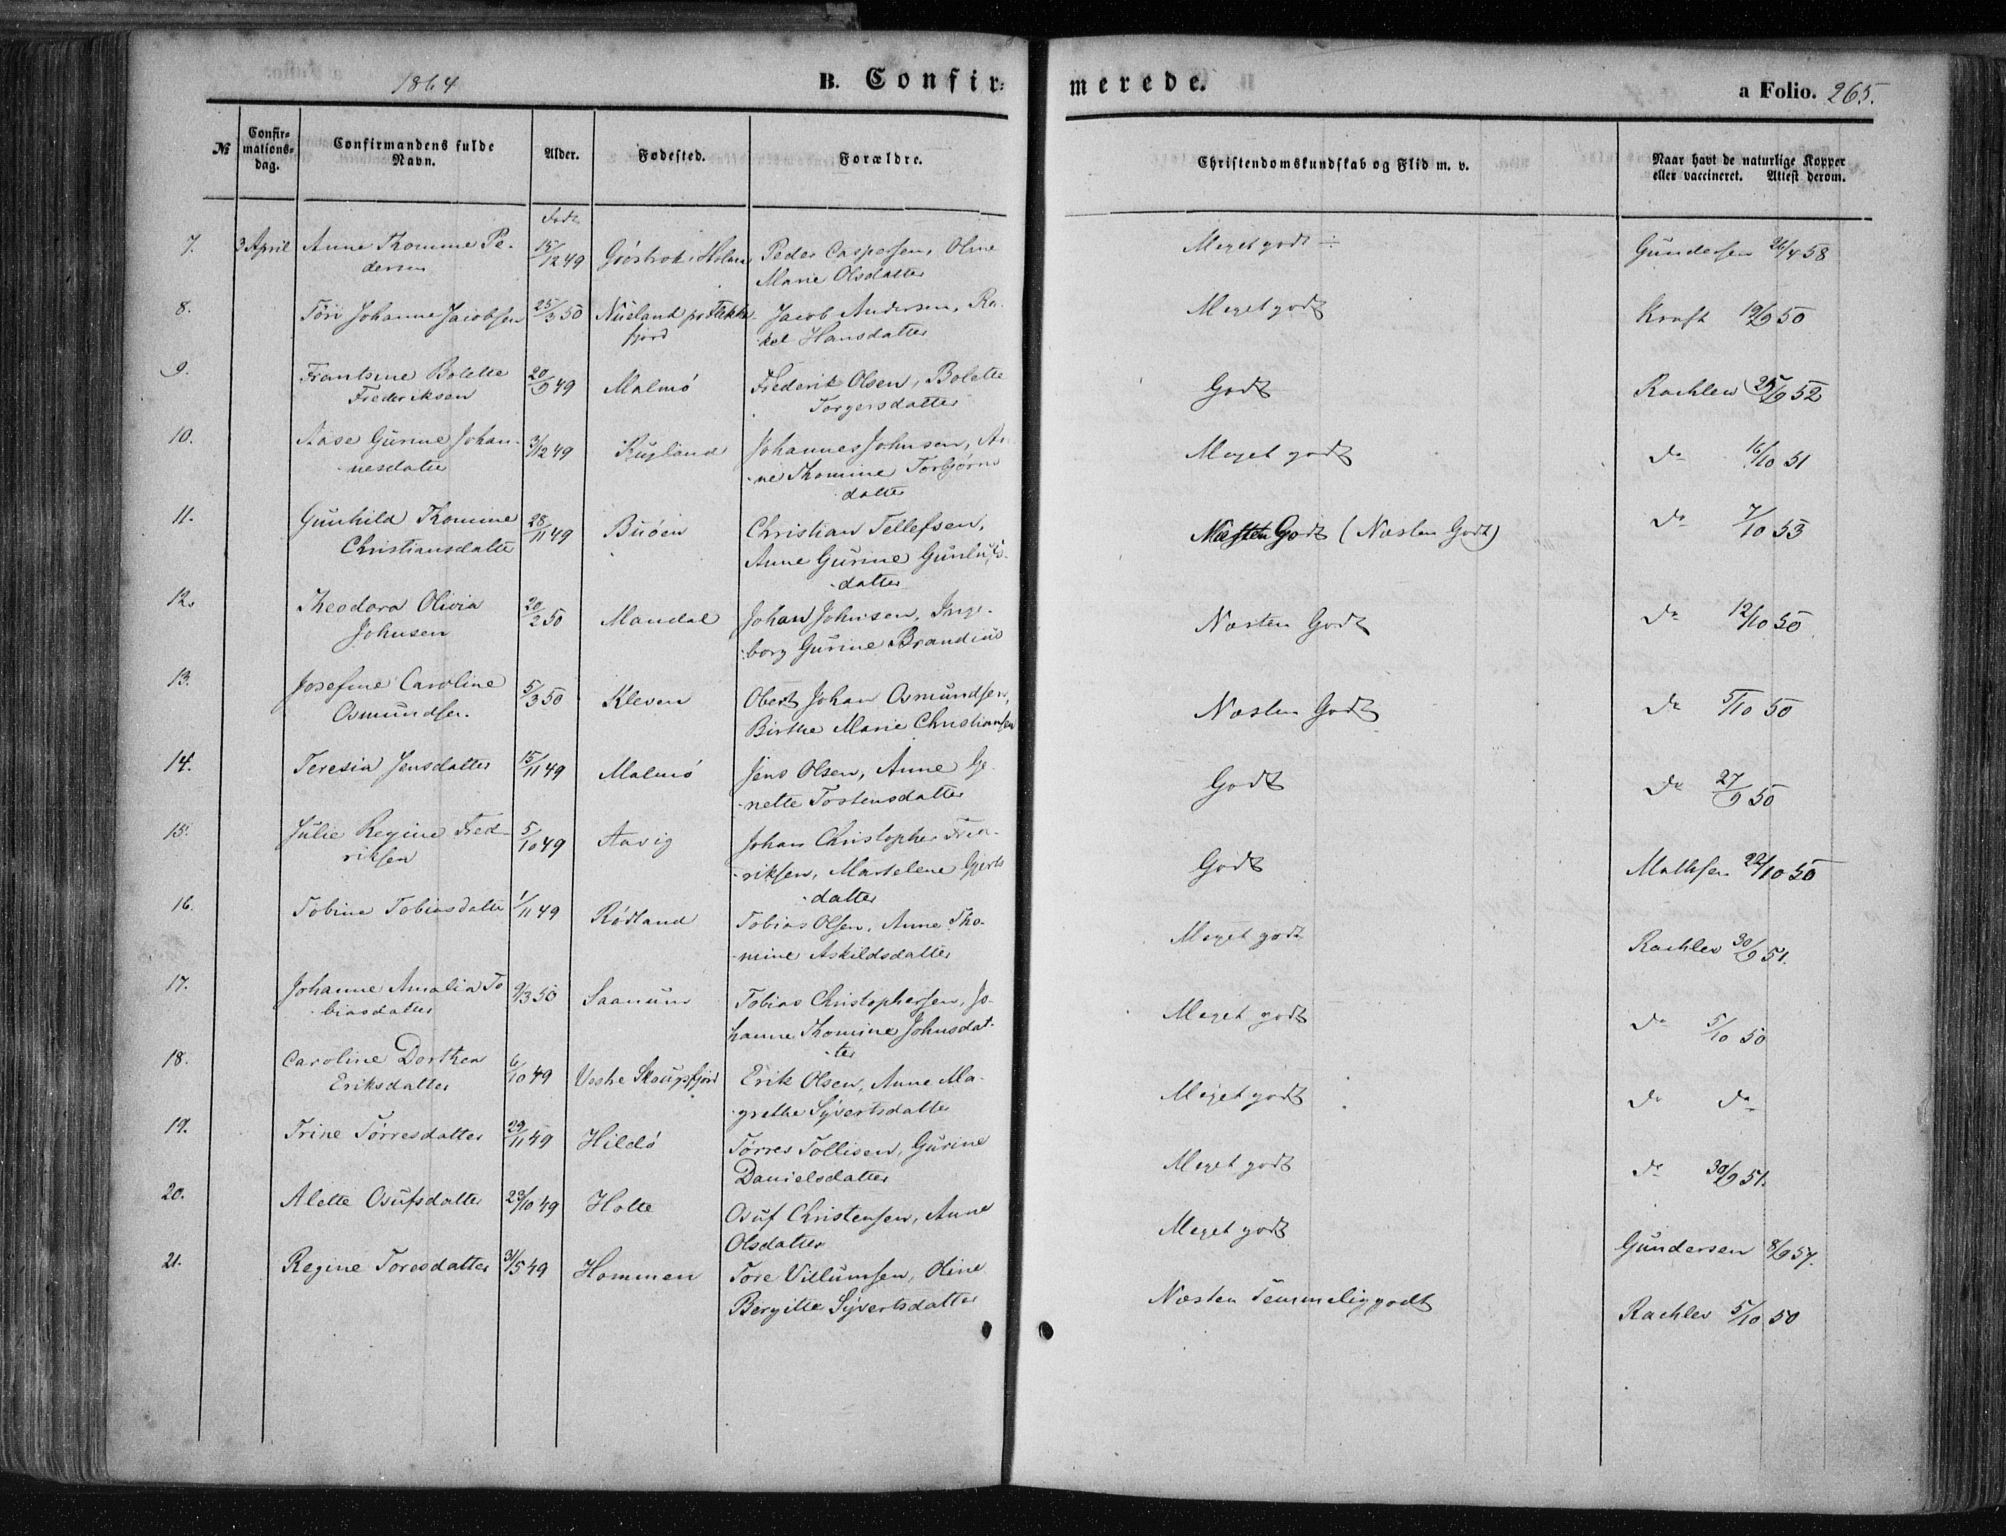 1864
B. Confir=
merede.
a Folio. 265.
No
Confirmations-dag.
Confirmandens fulde Navn.
Alder.
Fødested.
Forældre.
Christendomskundskab og Flid m. v.
Naar havt de naturlige Kopper eller vaccineret. Attest derom.
født
7. 3 April Anne Thomine Pe- 15/12 49 Holum Peder Caspersen, Oline Meget godt ÷ Gundersen 26/4 58
dersen Marie Olsdatter
8. Töri Johanne Jacobsen 25/3 50 Nueland pr Flekke- Jacob Andersen, Ra- Meget godt Kraft 19/9 50
fjord kel Hansdatter
9. Frantsine Bolette 20/9 49 Malmø Frederik Olsen, Bolette Godt Rachlew 25/9 52
Frederiksen Torgersdatter
10. Aase Gurine Johan- 3/12 49 Skugland Johannes Johnsen, An- Meget godt do 16/10 51
nesdatter ne Thomine Torbjørns
datter
11. Gunhild Thomine 28/11 49 Buøen Christian Tellefsen, Næsten Godt (Næsten Godt) do 7/10 53
Christiansdatter Anne Gurine Gunlufs-
datter
12. Theodora Olivia 20/2 50 Mandal Johan Johnsen, Inge- Næsten Godt do 12/10 50
Johnsen borg Gurine Brandius
13. Josefine Caroline 5/3 50 Kleven Obert Johan Osmundsen, Næsten Godt do 5/10 50
Osmundsen. Birthe Marie Christiansen
14. Teresia Jensdatter 15/11 49 Malmø Jens Olsen, Anne Ge- Godt do 27/9 50
nette Tostensdatter
15. Julie Regine Fred- 5/10 49 Aavig Johan Christopher Fred- Godt Mathsen 22/10 50
riksen riksen, Martelene Gjerts
datter
16. Tobine Tobiasdatter 1/11 49 Rødland Tobias Olsen, Anne Tho- Meget godt Rachlev 30/9 51.
mine Askildsdatter
17. Johanne Amalia To 9/3 50 Saanum Tobias Christophersen, Jo- Meget godt do 5/10 50
biasdatter hanne Thomine Johnsdat-
ter
18. Caroline Dorthea 6/10 49 Vestre Skougsfjord Erik Olsen, Anne Ma- Meget godt do do
Eriksdatter grethe Syvertsdatter
19. Trine Tørresdatter 29/11 49 Hildø Tørres Tollisen, Gurine Meget godt do 30/9 51.
Danielsdatter
20. Alette Osufsdatter 23/10 49 Holte Osuf Christensen, Anne Meget godt Gundersen 8/9 57.
Olsdatter
21. Regine Toresdatter 31/5 49 Hommen Tore Villumsen, Oline Næsten Temmelig godt Rachlev 5/10 50
Bergitte Syvertsdatter